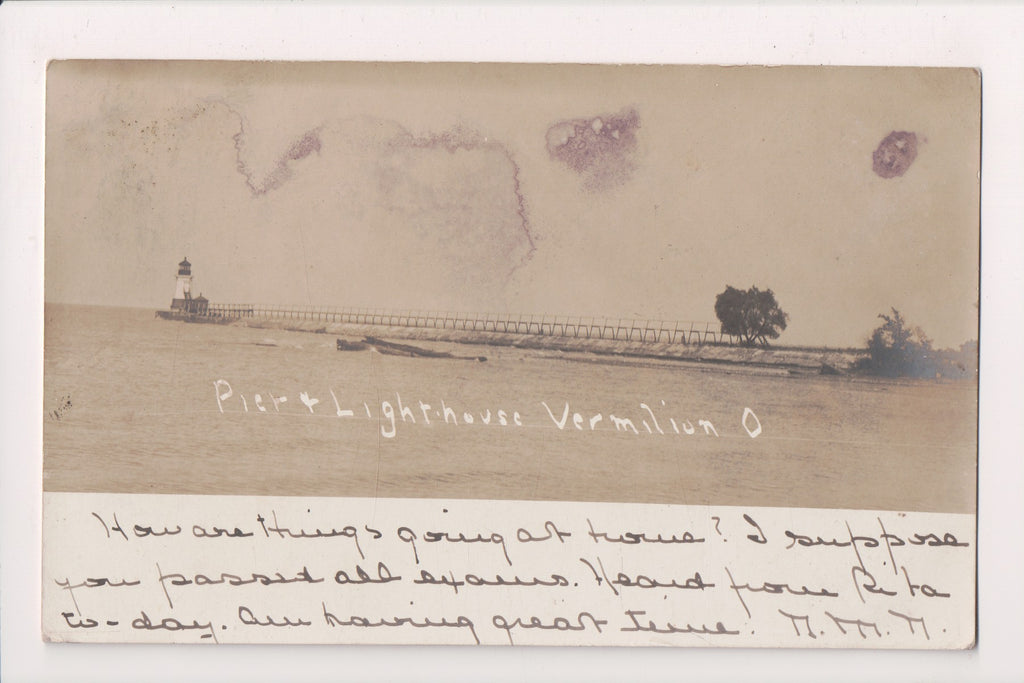 Pier & Light-house Vermilion O
How are things going at home? I suppose
you passed all exams. Heard from Rita
to-day. Am having great time. N. M. N.